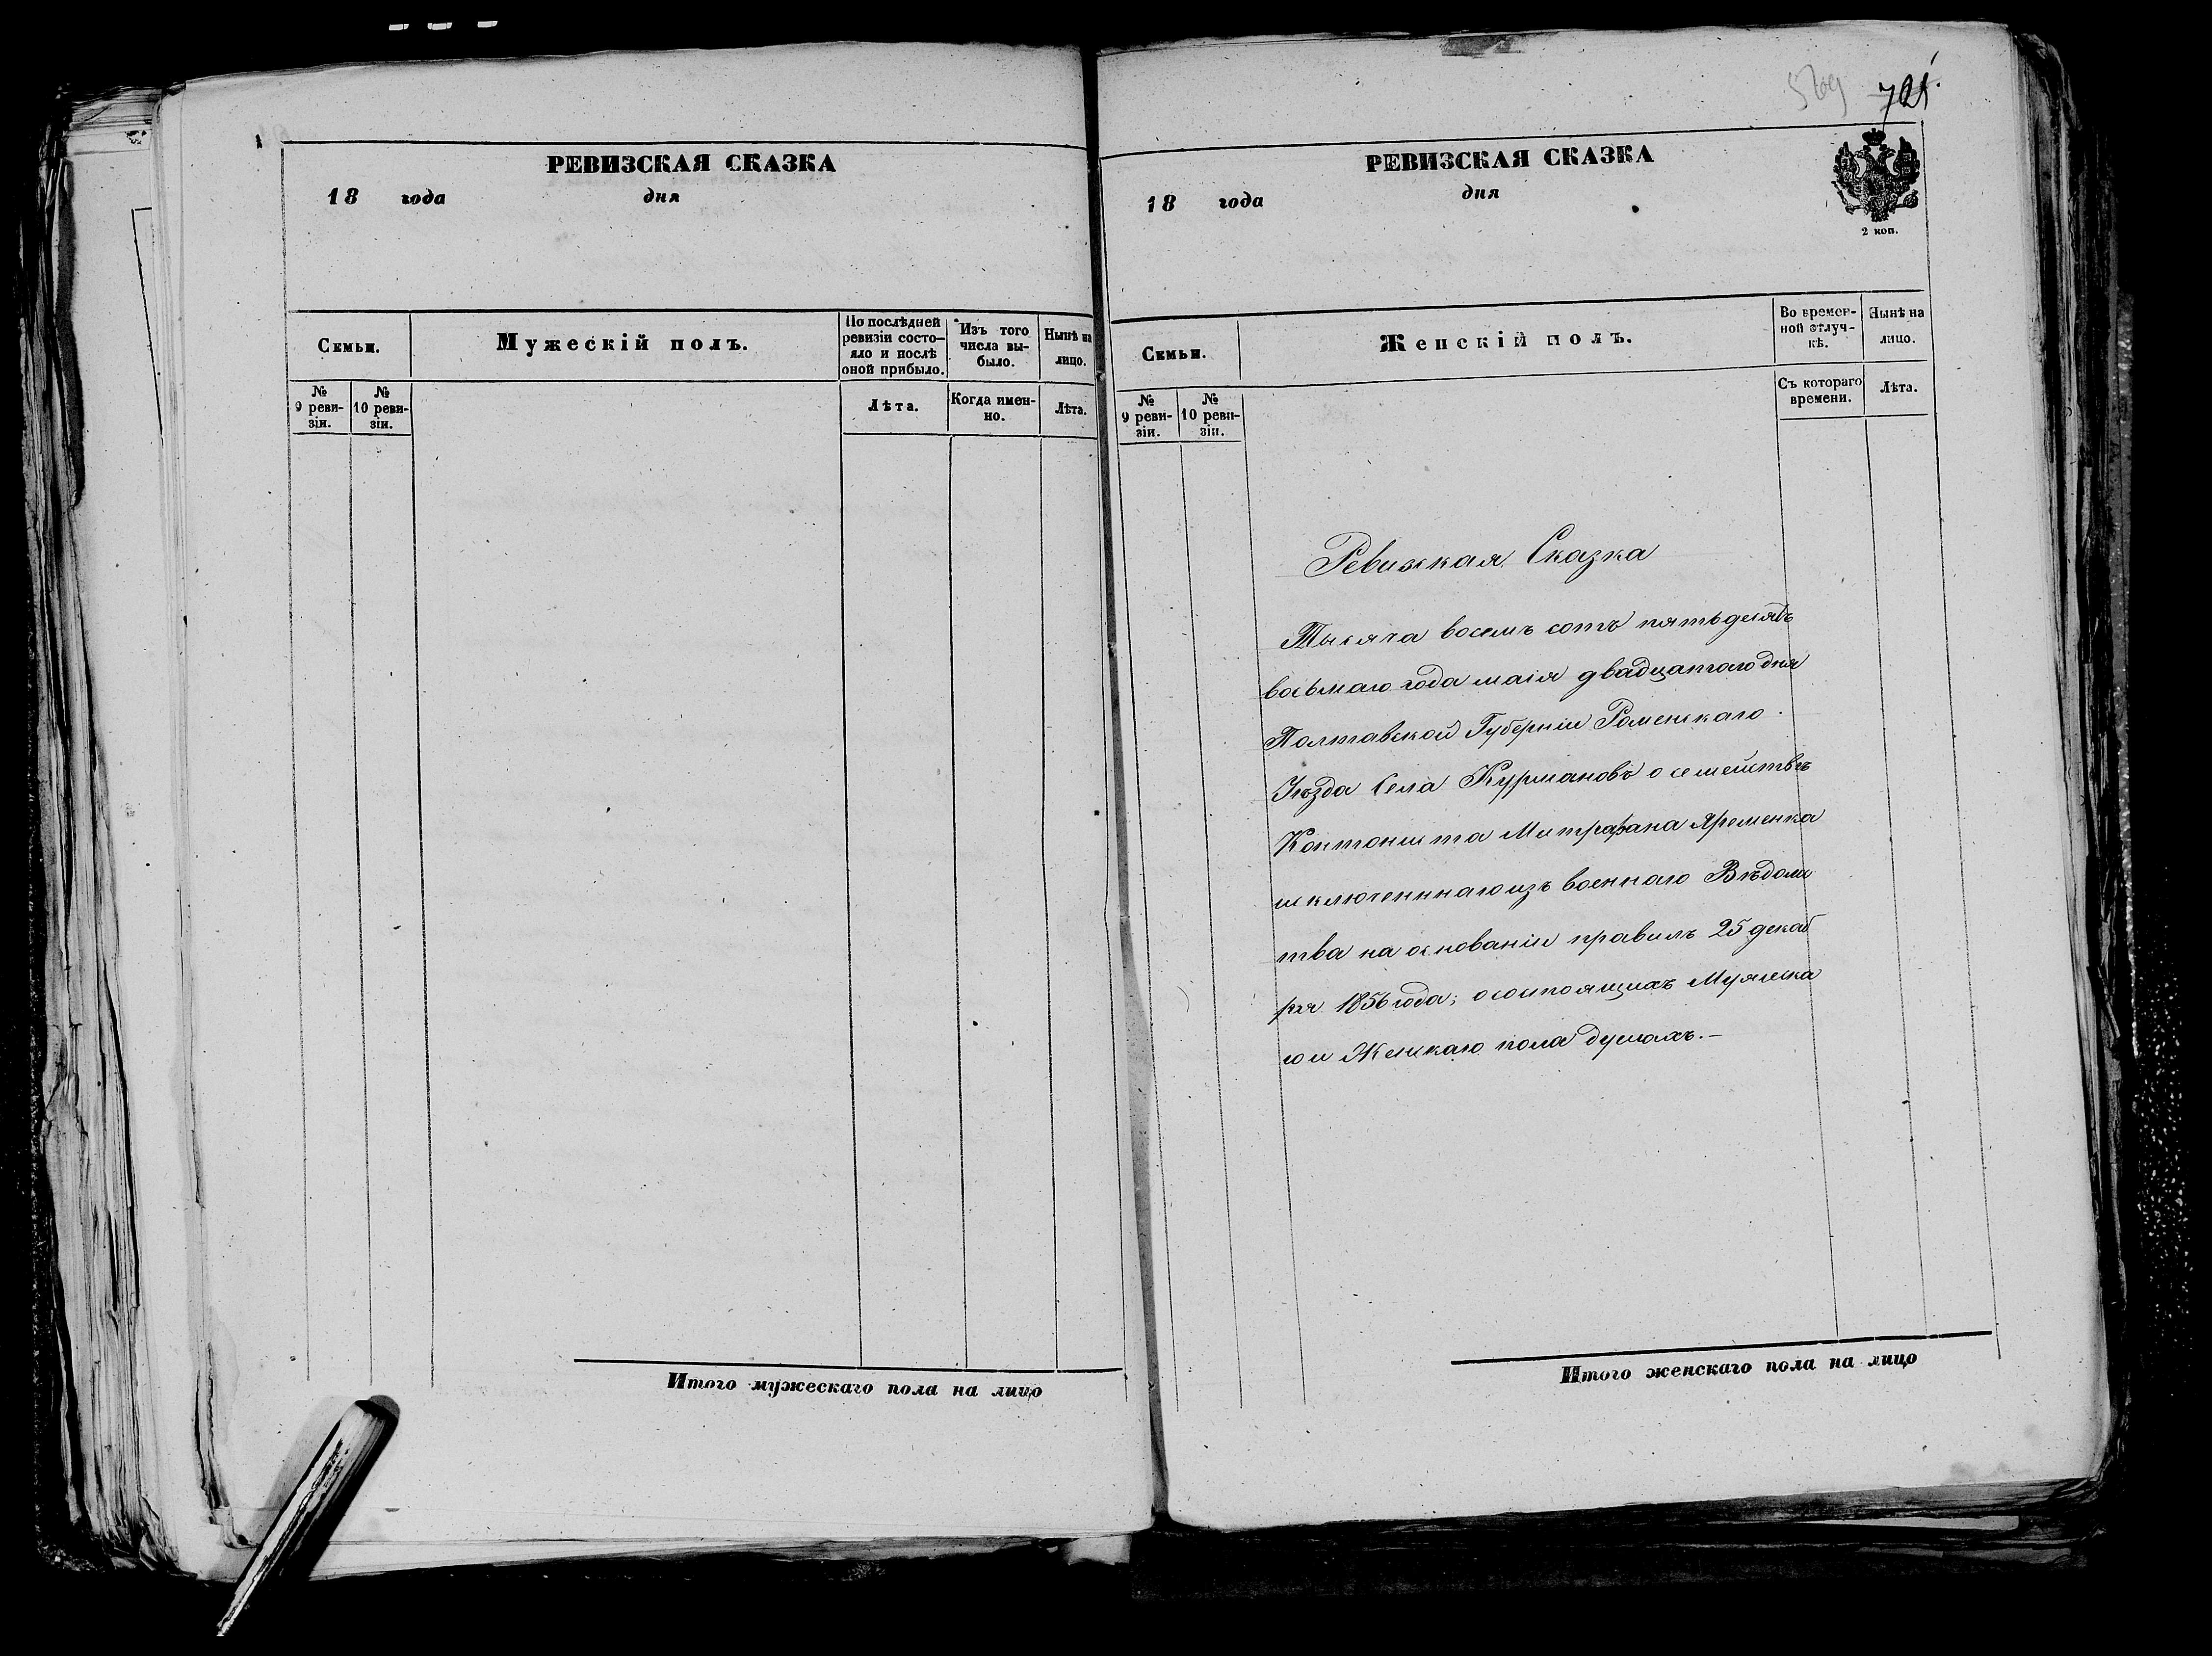 РЕВИЗСКАЯ СКАЗКА
18 года дня
Семьи.
Мужескій полъ.
По послѣдней
ревизіи состо-
яло и послѣ
оной прибыло.
Изъ того
числа вы-
было.
Нынѣ на
лицо.
№
9 реви-
зіи.
№
10 реви-
зіи.
Лѣта.
Когда имен-
но.
Лѣта.
Итого мужескаго пола на лицо
569
РЕВИЗСКАЯ СКАЗКА
18 года дня
2 коп.
Семьи.
Женскій полъ.
Во времен-
ной отлуч-
кѣ.
Нынѣ на
лицо.
№
9 реви-
зіи.
№
10 реви-
зіи.
Съ котораго
времени.
Лѣта.
Ревиская Сказка
Тысяча восемъ сотъ пятьдесятъ
восьмаго года маія двадцатаго дня
Полтавской Губерніи Роменскаго
Уѣзда Села Курмановъ о семействѣ
Контониста Митрафана Яременка
исключеннаго изъ военнаго Вѣдомс
тва на основаніи правилъ 25 декаб
ря 1856 года; о состоящихъ Мужеска
го и Женскаго пола душахъ.—
Итого женскаго пола на лицо